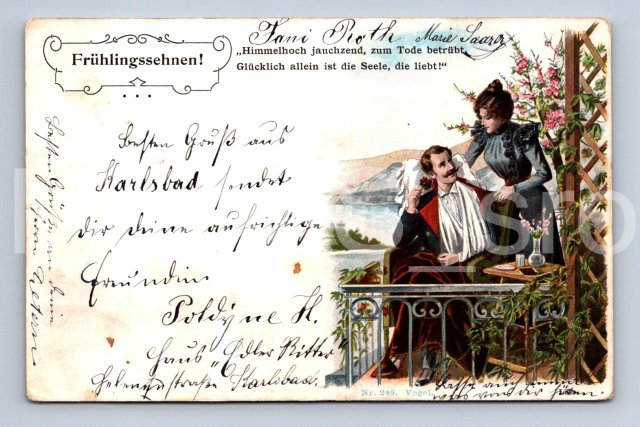 Frühlingssehnen!
Fani Roth Marie Saarz
„Himmelhoch jauchzend, zum Tode betrübt,
Glücklich allein ist die Seele, die liebt!“
Besten Gruß aus
Karlsbad sendet
dir deine aufrichtige
Freundin
Poldyne H.
Haus "Edler Ritter"
Helenenstraße Karlsbad.
Besten Grüße an deine
Eltern
Nr. 249. Vogel
Lasse auch
was von dir hören.